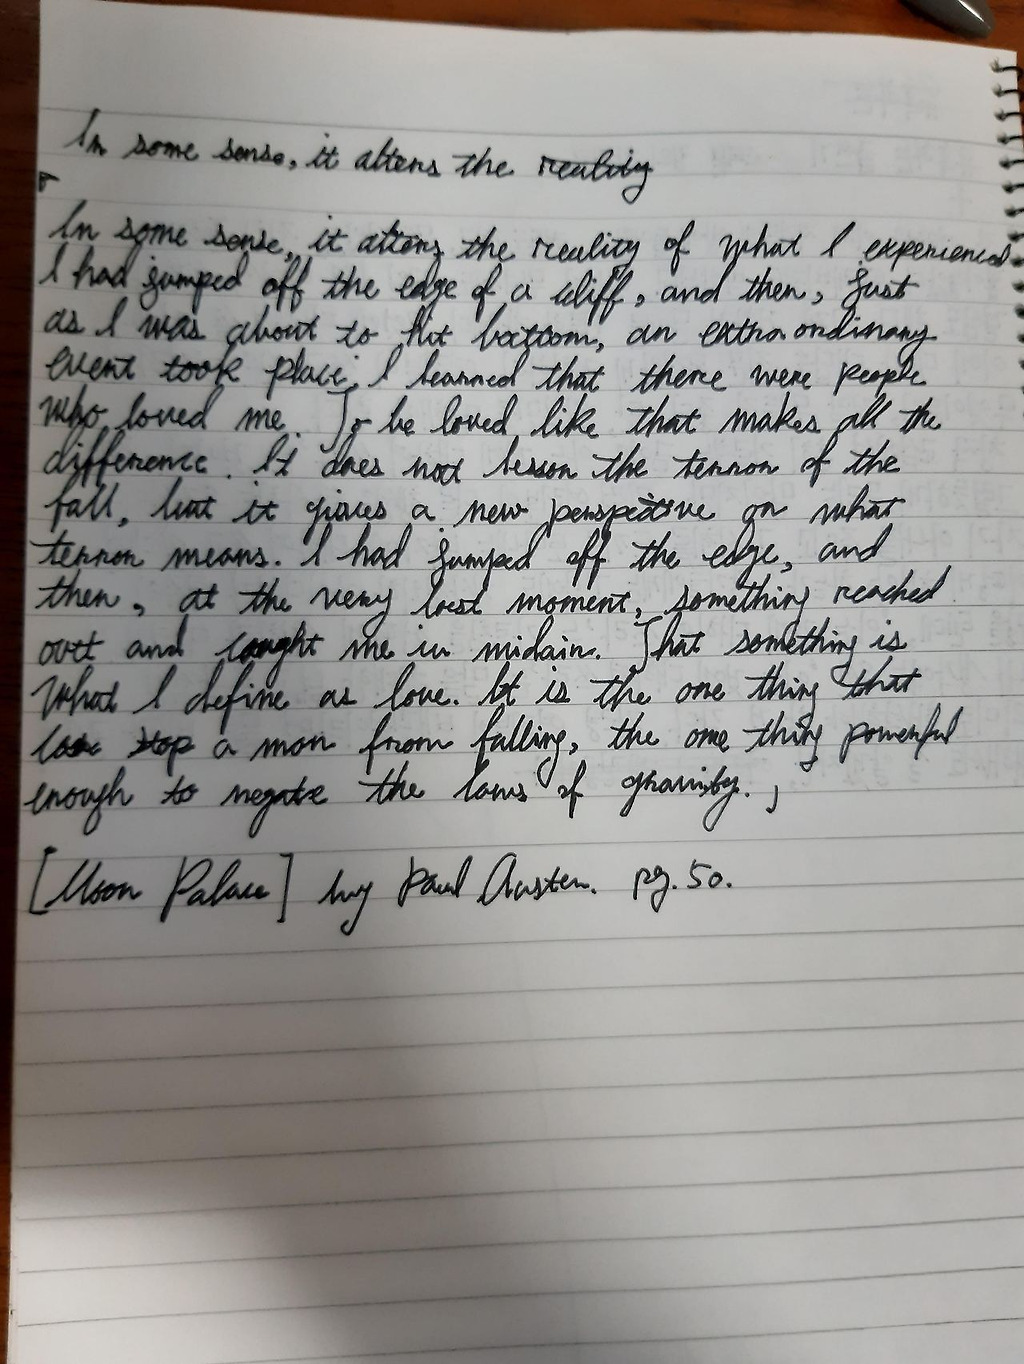 In some sense, it alters the reality
In some sense, it alters the reality of what I experienced
I had jumped off the edge of a cliff, and then, just
as I was about to hit bottom, an extraordinary
event took place, I learned that there were people
who loved me. To be loved like that makes all the
difference. It does not lesson the terror of the
fall, but it gives a new perspective on what
terror means. I had jumped off the edge, and
then, at the very last moment, something reached
out and caught me in midair. That something is
what I define as love. It is the one thing that
can stop a man from falling, the one thing powerful
enough to negate the laws of gravity.
[Moon Palace] by Paul Auster. pg. 50.